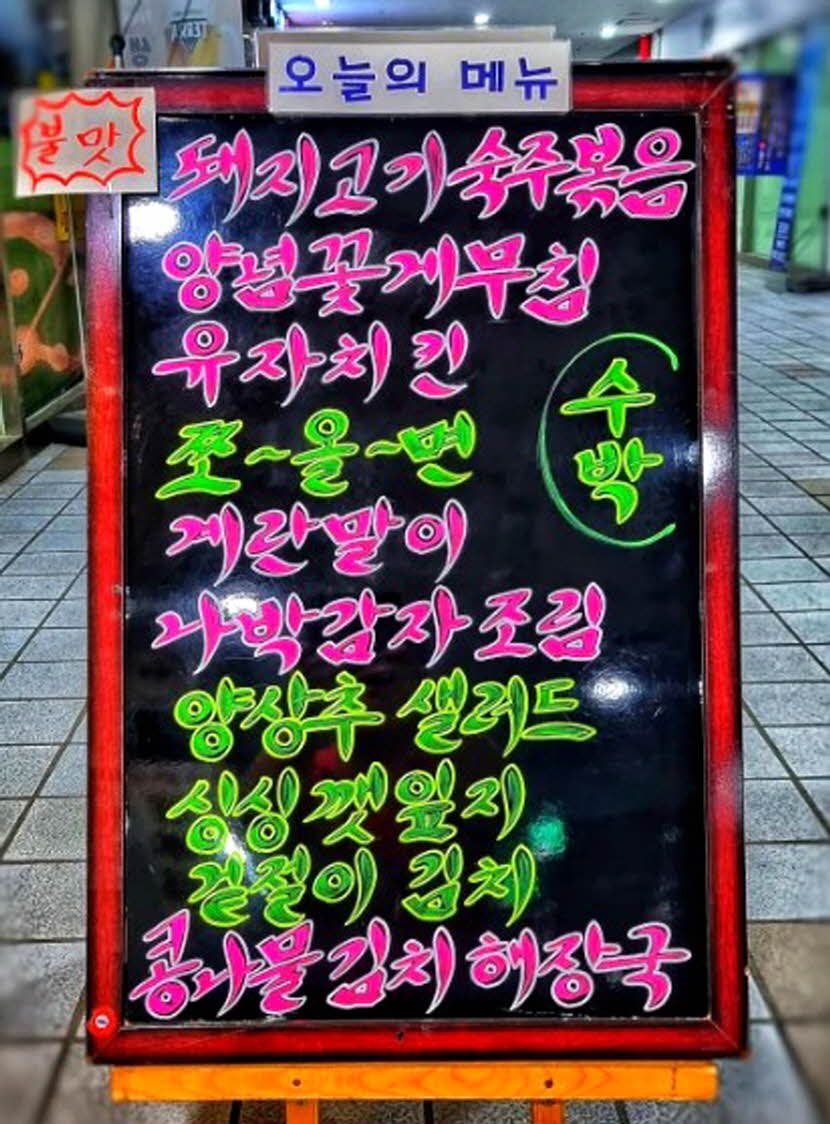 오늘의 메뉴
불맛
돼지고기숙주볶음
양념꽃게무침
유자치킨
쪼~올~면
계란말이
나박감자조림
양상추 샐러드
싱싱 깻잎지
겉절이 김치
콩나물김치해장국
수박